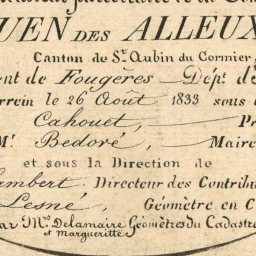 UEN DES ALLEUX
Canton de St. Aubin du Cormier
ent de Fougères Dépt. d'
rrein le 26 Août 1833 sous
Cahouet, P
Mr. Bedoré, Maire
et sous la Direction de
ambert, Directeur des Contribu
Lesne, Géomètre en C
ar Mrs. Delamaire Géomètres du Cadastre
et margueritte